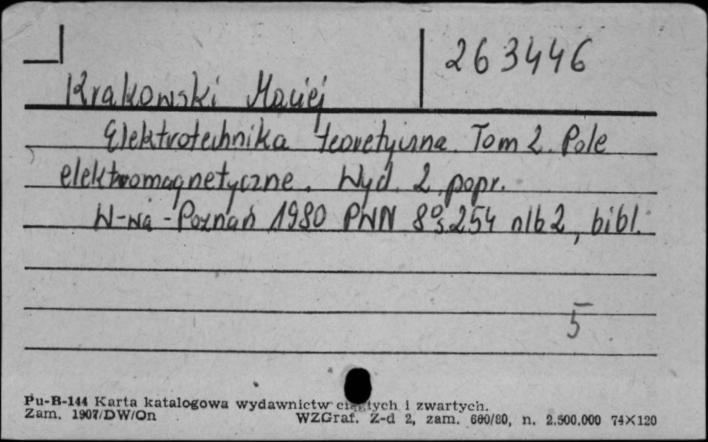 263446
Krakowski Maciej
Elektrotechnika teoretyczna. Tom 2. Pole
elektromagnetyczne. Wyd. 2 popr.
W-wa - Poznań 1980 PWN 8° s. 254 nlb 2, bibl.
5
Pu-B-144 Karta katalogowa wydawnictw ciągłych i zwartych.
Zam. 1907/DW/On WZGraf. Z-d 2, zam. 600/80, n. 2.500.000 74×120